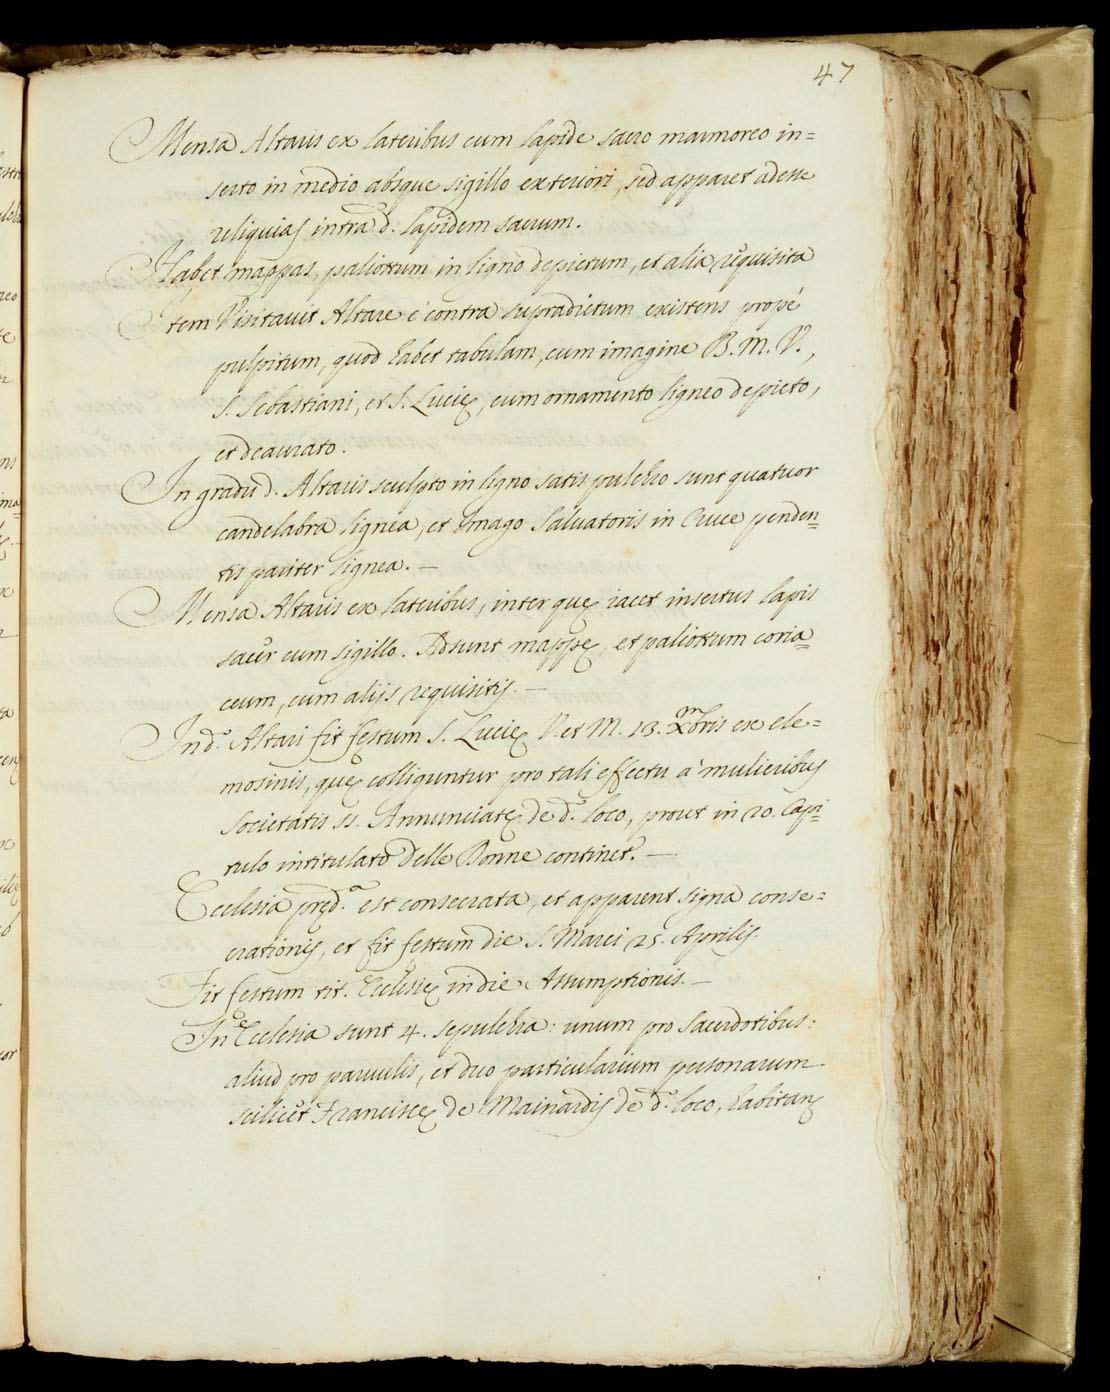 47
Mensa Altaris ex lateribus cum lapide sacro marmoreo in=
serto in medio absque sigillo exteriori, sed apparet adesse
reliquias intra d. lapidem sacrum.
Habet mappas, paliottum in ligno depictum, et alia requisita
Item Visitavit Altare è contra supradictum existens propè
pulpitum, quod habet tabulam, cum imagine B. M. V.,
S. Sebastiani, et S. Lucię, cum ornamento ligneo depicto,
et deaurato.
In gradu d. Altaris sculpto in ligno satis pulchro sunt quatuor
candelabra lignea, et imago Salvatoris in Cruce penden=
tis pariter lignea. —
Mensa Altaris ex lateribus, inter quę iacet insertus lapis
sacer cum sigillo. Adsunt mappę, et paliottum coria=
ceum, cum alijs requisitis. —
In d.º Altari fit festum S. Lucię V. et M. 13. Xmbris ex ele=
mosinis, quę colliguntur pro tali effectu à mulieribus
Societatis SS. Annunciatę de d.º loco, prout in 20. Capi=
tulo intitulato Delle Donne continet.r —
Ecclesia pręd.a est consecrata, et apparent signa conse=
crationis, et fit festum die S. Marci 25. Aprilis.
Fit festum tit. Ecclesię in die Assumptionis. —
In Ecclesia sunt 4. sepulchra: unum pro Sacerdotibus:
aliud pro parvulis, et duo particularium personarum
scilicet Franciscę de Mainardis de d.º loco, habitan=